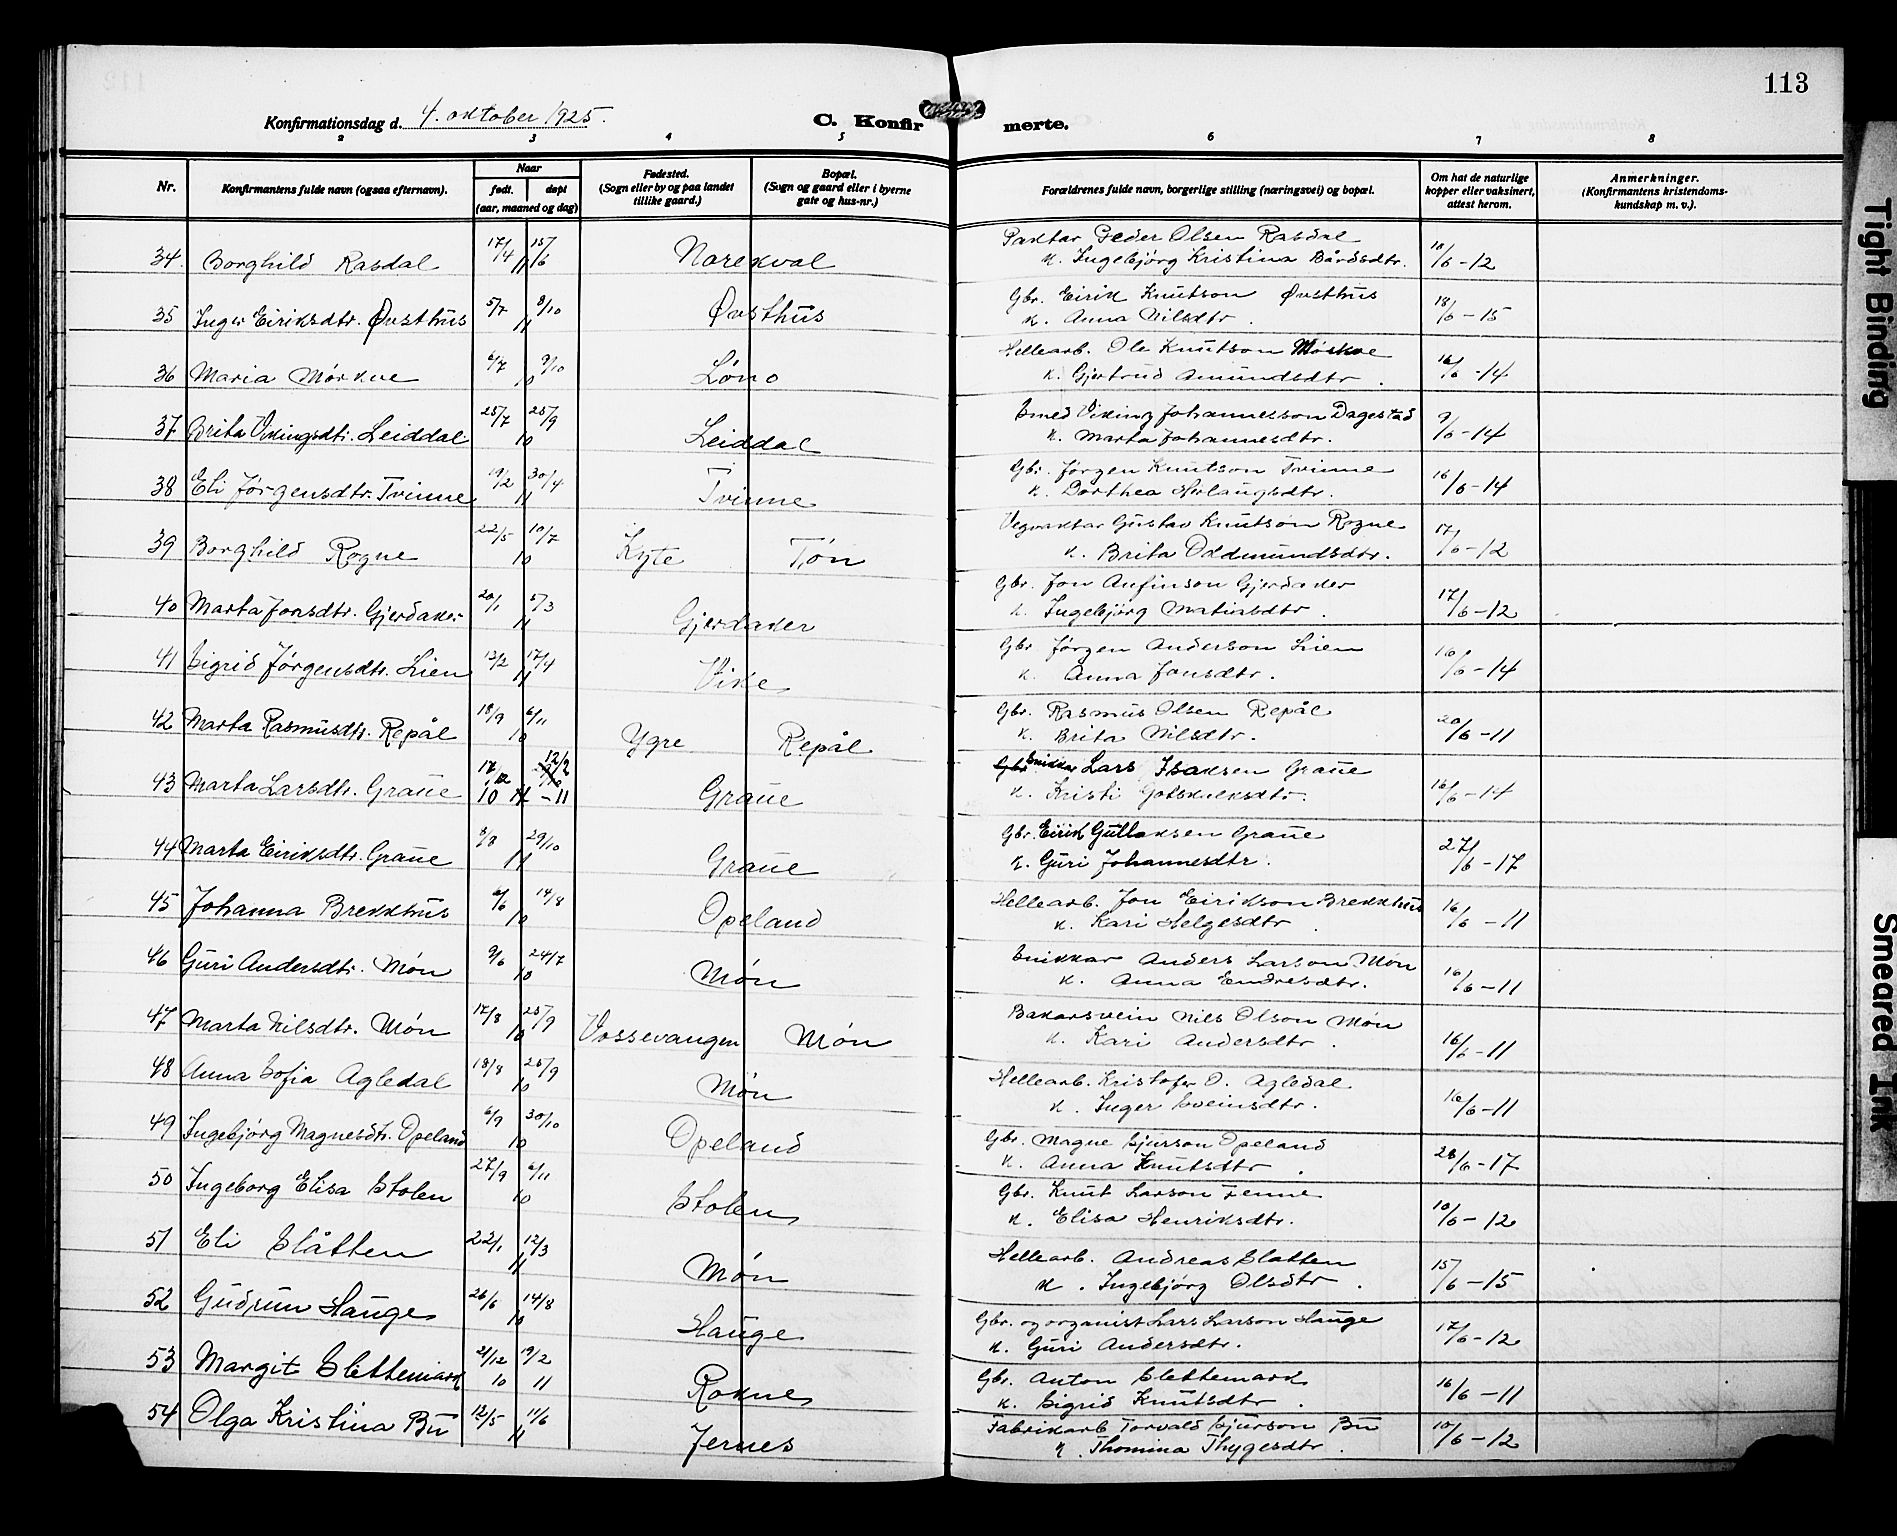 113
Konfirmationsdag d. 4. oktober 1925.
C. Konfirmerte.
2 3 4 5 6 7 8
Nr.
Konfirmantens fulde navn (ogsaa efternavn).
Naar
født. døpt
(aar, maaned og dag)
Fødested.
(Sogn eller by og paa landet
tillike gaard.)
Bopæl.
(Sogn og gaard eller i byerne
gate og hus-nr.)
Forældrenes fulde navn, borgerlige stilling (næringsvei) og bopæl.
Om hat de naturlige
kopper eller vaksinert,
attest herom.
Anmerkninger.
(Konfirmantens kristendoms-
kundskap m. v.).
34. Borghild Rasdal 17/4 15/6 11 Narekval Paktar Peder Olsen Rasdal 18/6-12
k. Ingebjørg Kristina Bårdsdtr.
35 Inger Eiriksdtr. Øvsthus 5/7 8/10 11 Øvsthus Gbr. Eirik Knutson Øvsthus 18/6-15
k. Anna Nilsdtr.
36 Maria Mørkve 6/7 9/10 10 Løno Hellearb. Ole Knutson Mørkve 16/6-14
k. Gjertrud Amundsdtr.
37 Brita Vikingsdtr. Leiddal 25/7 25/9 10 Leiddal Smed Viking Johannesson Dagestad 9/6-14
k. Marta Johannesdtr.
38 Eli Jørgensdtr. Tvinne 19/2 30/4 11 Tvinne Gbr. Jørgen Knutson Tvinne 16/6-14
k. Dorthea Herlaugsdtr.
39 Borghild Rogne 22/5 10/7 10 Kyte Tøn Vegvaktar Gustav Knutson Rogne 17/6-12
k. Brita Oddmundsdtr.
40 Marta Jonsdtr. Gjerdaker 20/1 5/3 11 Gjerdaker Gbr. Jon Anfinson Gjerdaker 17/6-12
k. Ingebjørg Matiasdtr.
41 Sigrid Jørgensdtr. Lien 12/2 17/4 11 Vike Gbr. Jørgen Anderson Lien 16/6-14
k. Anna Jonsdtr.
42 Marta Rasmusdtr. Repål 18/9 6/11 10 Ygre Repål Gbr. Rasmus Olsen Repål 20/6-11
k. Brita Nilsdtr.
43 Marta Larsdtr. Graue 17/12 10 12/2 -11 Graue Gbr Snikkar Lars Isaksen Graue 16/6-14
k. Kristi Gotskalksdtr.
44 Marta Eiriksdtr. Graue 8/8 29/10 11 Graue Gbr. Eirik Gullaksen Graue 27/6-17
k. Guri Johannesdtr.
45 Johanna Brekkhus 6/6 14/8 10 Opeland Hellearb. Jon Eirikson Brekkhus 16/6-11
k. Kari Helgesdtr
46 Guri Andersdtr. Møn 9/6 24/7 10 Møn Snikkar Anders Larson Møn 16/6-11
k. Anna Endresdtr.
47 Marta Nilsdtr. Møn 17/8 25/9 10 Vossevangen Møn Bakarsvein Nils Olson Møn 16/6-11
k. Kari Andersdtr.
48 Anna Sofia Agledal 18/8 25/9 10 Møn Hellearb. Kristofer O. Agledal 16/6-11
k. Inger Sveinsdtr.
49 Ingebjørg Magnesdtr. Opeland 6/9 30/10 10 Opeland Gbr. Magne Sjurson Opeland 28/6-17
k. Anna Knutsdtr.
50 Ingeborg Elisa Stolen 27/9 6/11 10 Stolen Gbr. Knut Larson Fenne 10/6-12
k. Elisa Henriksdtr.
51 Eli Slåtten 22/1 12/3 11 Møn Hellearb. Andreas Slatten 15/6-15
k. Ingebjørg Olsdtr.
52 Gudrun Hauge 26/6 14/8 10 Hauge Gbr. og organist Lars Larson Hauge 17/6-12
k. Guri Andersdtr.
53 Margit Slettemark 21/12 10 19/2 11 Rokne Gbr. Anton Slettemark 16/6-11
k. Sigrid Knutsdtr.
54 Olga Kristina Bu 12/5 11/6 11 Jernes Fabrikarb Torvald Sjurson Bu 10/6-12
k. Thomina Thygesdtr.
Tight Binding
Smeared Ink